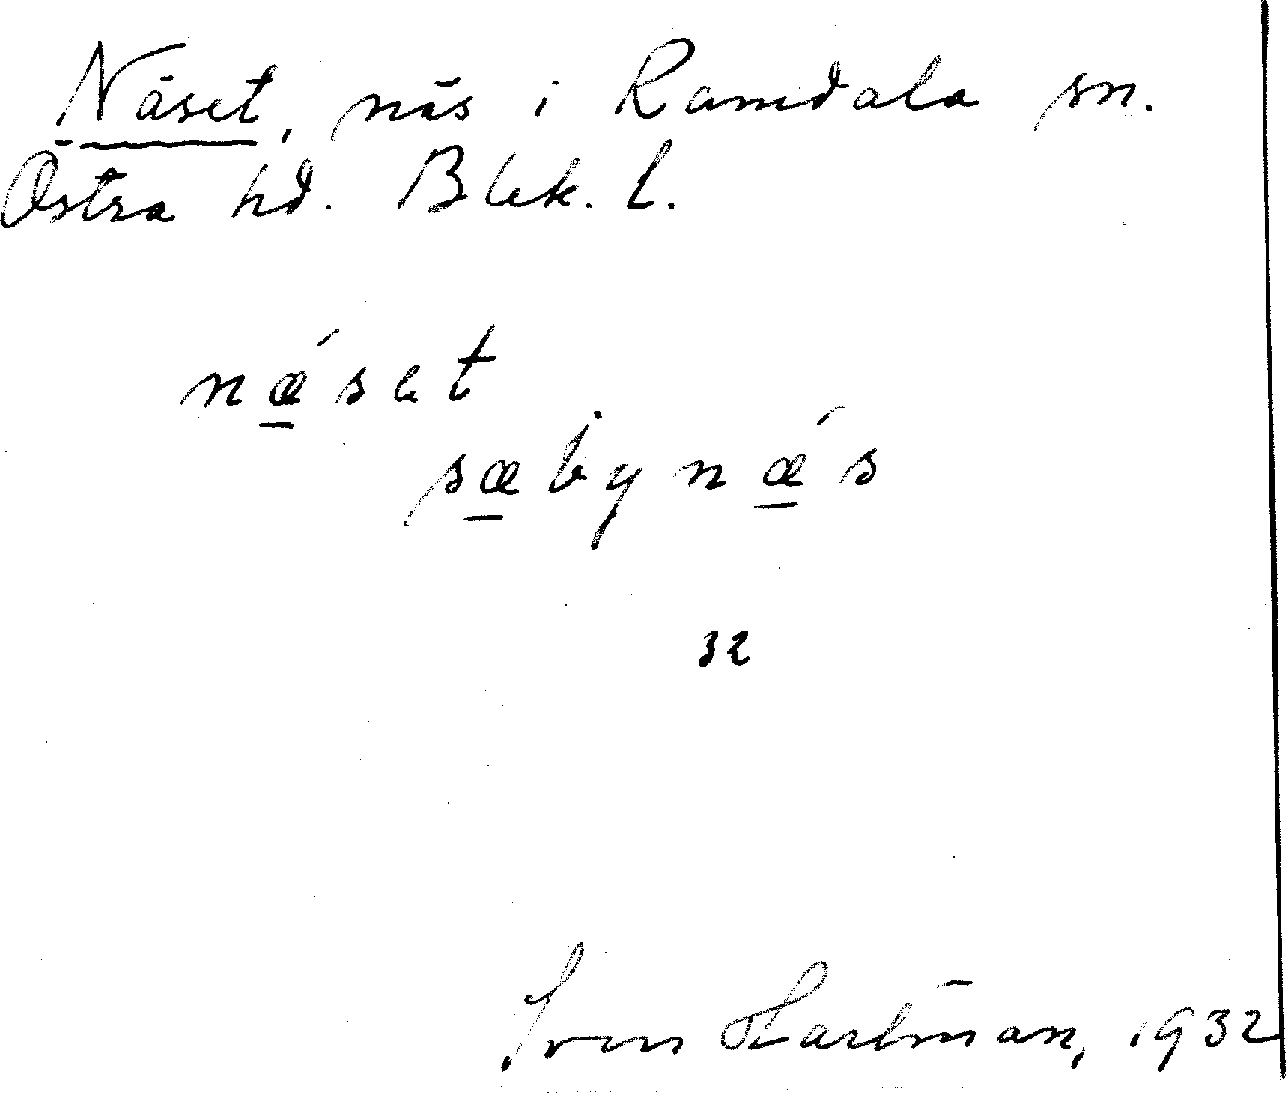 Näset, näs i Ramdala sn.
Östra hd. Blek. l.
nǽ̲set
sæ̲bynǽ̲s
32
Sven Hartman, 1932